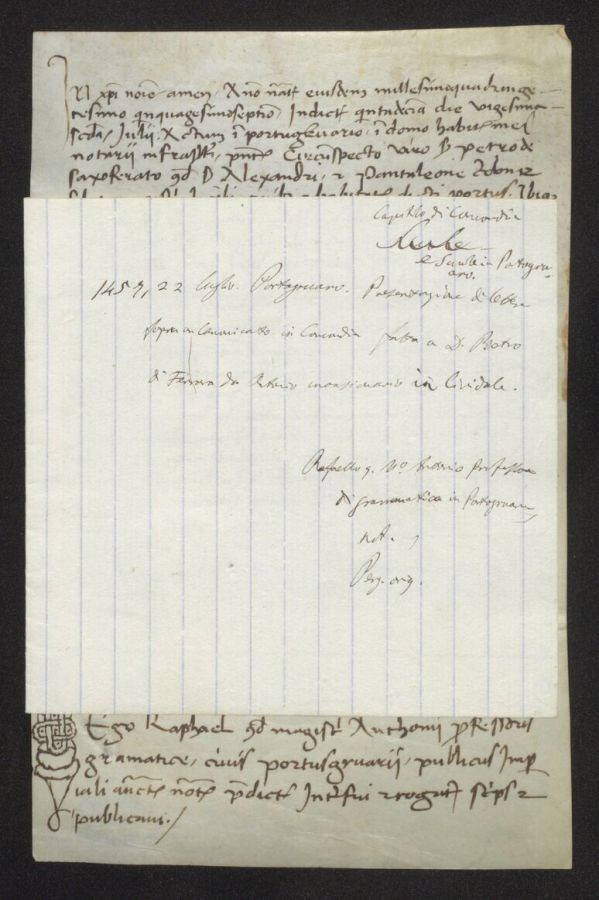 IN xpi noie amen, Anno natt eiusdem millesimoquadringe-
tesimo qnquagesimoseptio, Indictˢ qntadecia die vigesima
scda, Julii, Actum i portugruario, i domo habitˢ mei
notarii infrasſti, pntˢ Circumspecto viro D petro de
saxoferato qd D Alexandri, z Pantaleone
portus. Ibiq
Capitolo di Concordia
Scuole
e Scuole in Portogru-
aro.
1457, 22 luglio. Portogruaro. Presentazione di lettera
sopra un Canonicato in Concordia fatta a D. Pietro
di mansionario in Cividale.
Raffaello q. Mº Antonio professore
di grammatica in Portogruaro,
not.,
Perg. orig.
Ego Raphael qd magistˢ Anthonii pfessoris
gramatice, civis portusgruarii, publicus Imp
iali aucte notˢ pdictˢ Interfui z rogatˢ scripsi z
publicavi./